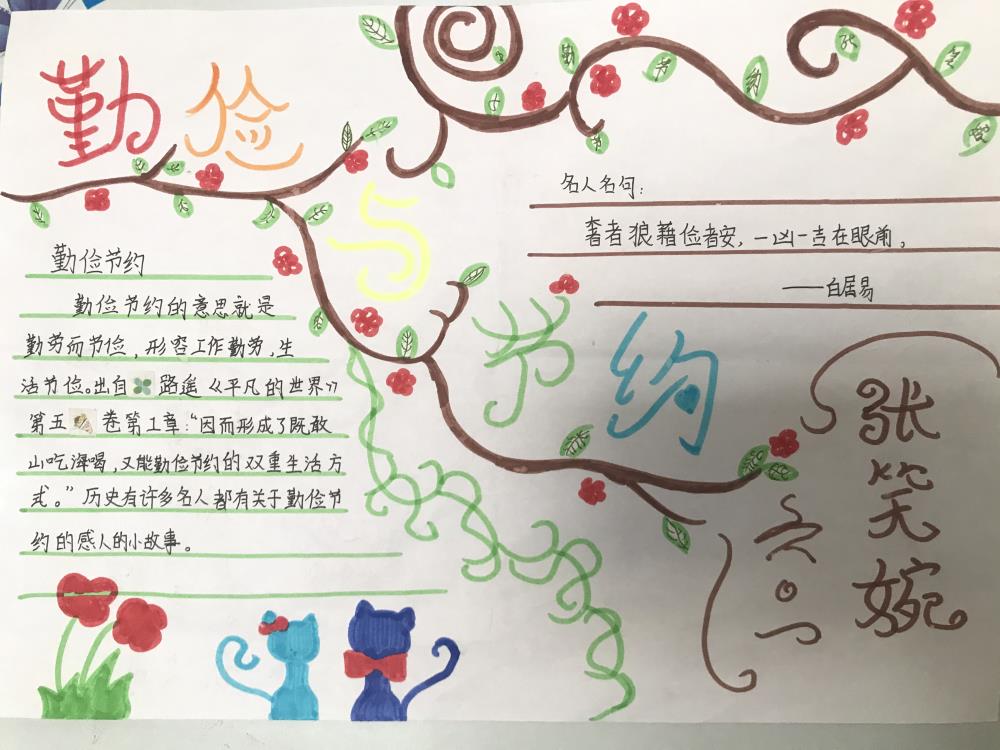 勤俭
与
节约
名人名句：
奢者狼藉俭者安，一凶一吉在眼前。
——白居易
勤俭节约
勤俭节约的意思就是
勤劳而节俭，形容工作勤劳，生
活节俭。出自路遥《平凡的世界》
第五卷第1章：“因而形成了既敢
山吃海喝，又能勤俭节约的双重生活方
式。”历史有许多名人都有关于勤俭节
约的感人的小故事。
张笑婉
六。一